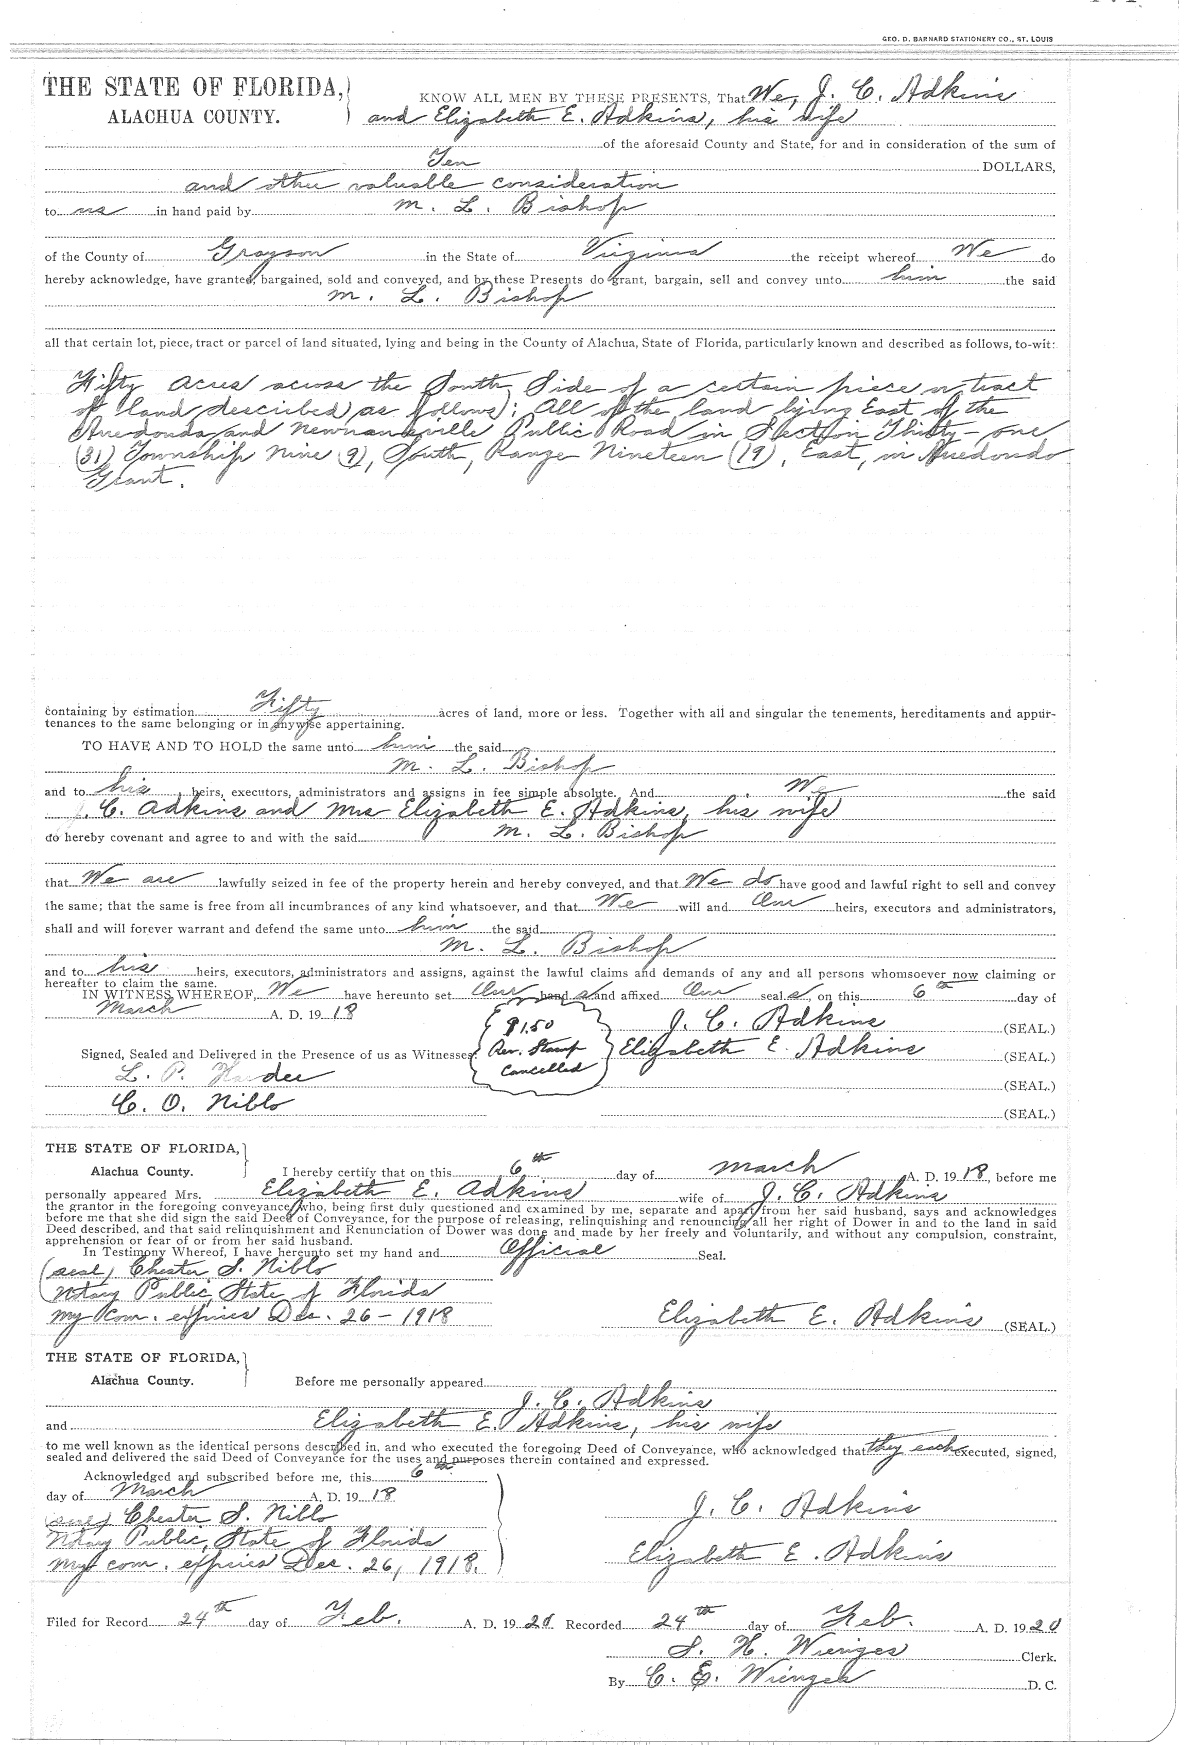 GEO. D. BARNARD STATIONERY CO., ST. LOUIS
THE STATE OF FLORIDA,
ALACHUA COUNTY.
KNOW ALL MEN BY THESE PRESENTS, That We, J. C. Adkins
and Elizabeth E. Adkins, his wife
of the aforesaid County and State, for and in consideration of the sum of
Ten DOLLARS,
and other valuable consideration
to us in hand paid by M. L. Bishop
of the County of Grayson in the State of Virginia the receipt whereof We do
hereby acknowledge, have granted, bargained, sold and conveyed, and by these Presents do grant, bargain, sell and convey unto him the said
M. L. Bishop
all that certain lot, piece, tract or parcel of land situated, lying and being in the County of Alachua, State of Florida, particularly known and described as follows, to-wit:
Fifty Acres across the South Side of a certain piece or tract
of land described as follows; All of the land lying East of the
Arredonda and Newnansville Public Road in Section Thirty-one
(31) Township Nine (9), South, Range Nineteen (19), East, in Arredondo
Grant.
containing by estimation Fifty acres of land, more or less. Together with all and singular the tenements, hereditaments and appur-
tenances to the same belonging or in anywise appertaining.
TO HAVE AND TO HOLD the same unto him the said
M. L. Bishop
and to his heirs, executors, administrators and assigns in fee simple absolute. And We the said
J. C. Adkins and Mrs Elizabeth E. Adkins, his wife
do hereby covenant and agree to and with the said M. L. Bishop
that We are lawfully seized in fee of the property herein and hereby conveyed, and that We do have good and lawful right to sell and convey
the same; that the same is free from all incumbrances of any kind whatsoever, and that We will and Our heirs, executors and administrators,
shall and will forever warrant and defend the same unto him the said
M. L. Bishop
and to his heirs, executors, administrators and assigns, against the lawful claims and demands of any and all persons whomsoever now claiming or
hereafter to claim the same.
IN WITNESS WHEREOF, We have hereunto set Our hand s and affixed Our seal s, on this 6th day of
March A. D. 1918
J. C. Adkins (SEAL.)
$1.50
Rev. Stamp
Cancelled
Signed, Sealed and Delivered in the Presence of us as Witnesses: Elizabeth E. Adkins (SEAL.)
L. P. Hardee (SEAL.)
C. O. Niblo (SEAL.)
THE STATE OF FLORIDA,
Alachua County.
I hereby certify that on this 6th day of March A. D. 1918, before me
personally appeared Mrs. Elizabeth E. Adkins wife of J. C. Adkins
the grantor in the foregoing conveyance, who, being first duly questioned and examined by me, separate and apart from her said husband, says and acknowledges
before me that she did sign the said Deed of Conveyance, for the purpose of releasing, relinquishing and renouncing all her right of Dower in and to the land in said
Deed described, and that said relinquishment and Renunciation of Dower was done and made by her freely and voluntarily, and without any compulsion, constraint,
apprehension or fear of or from her said husband.
In Testimony Whereof, I have hereunto set my hand and Official Seal.
(seal) Chester S. Niblo
Notary Public, State of Florida
my com. expires Dec. 26-1918
Elizabeth E. Adkins (SEAL.)
THE STATE OF FLORIDA,
Alachua County.
Before me personally appeared
J. C. Adkins
and Elizabeth E. Adkins, his wife
to me well known as the identical persons described in, and who executed the foregoing Deed of Conveyance, who acknowledged that they each executed, signed,
sealed and delivered the said Deed of Conveyance for the uses and purposes therein contained and expressed.
Acknowledged and subscribed before me, this 6th
day of March A. D. 1918
(seal) Chester S. Niblo
Notary Public, State of Florida
my com. expires Dec. 26, 1918.
J. C. Adkins
Elizabeth E. Adkins
Filed for Record 24th day of Feb. A. D. 1920 Recorded 24th day of Feb. A. D. 1920
S. H. Wienges Clerk.
By C. E. Wienges D. C.